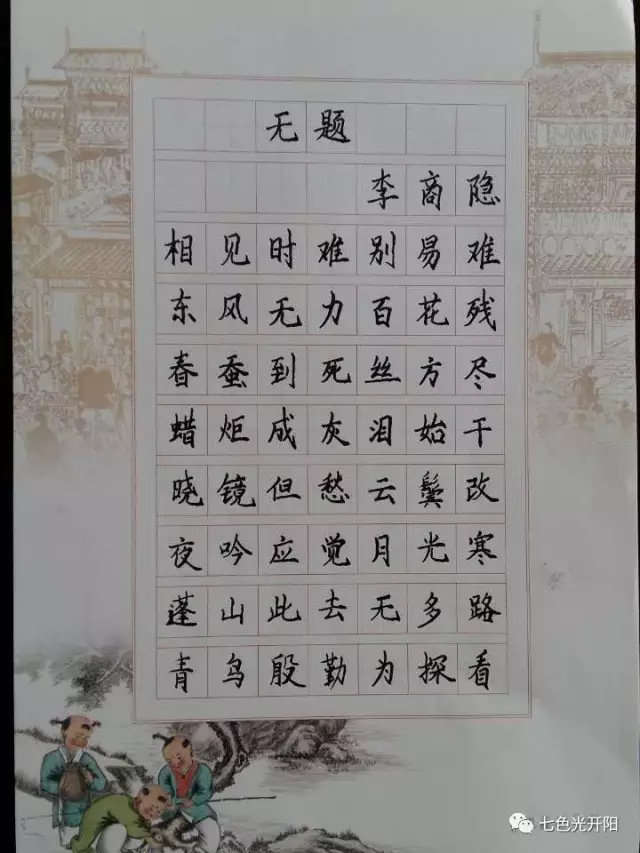 无题
李商隐
相见时难别易难
东风无力百花残
春蚕到死丝方尽
蜡炬成灰泪始干
晓镜但愁云鬓改
夜吟应觉月光寒
蓬山此去无多路
青鸟殷勤为探看
七色光开阳